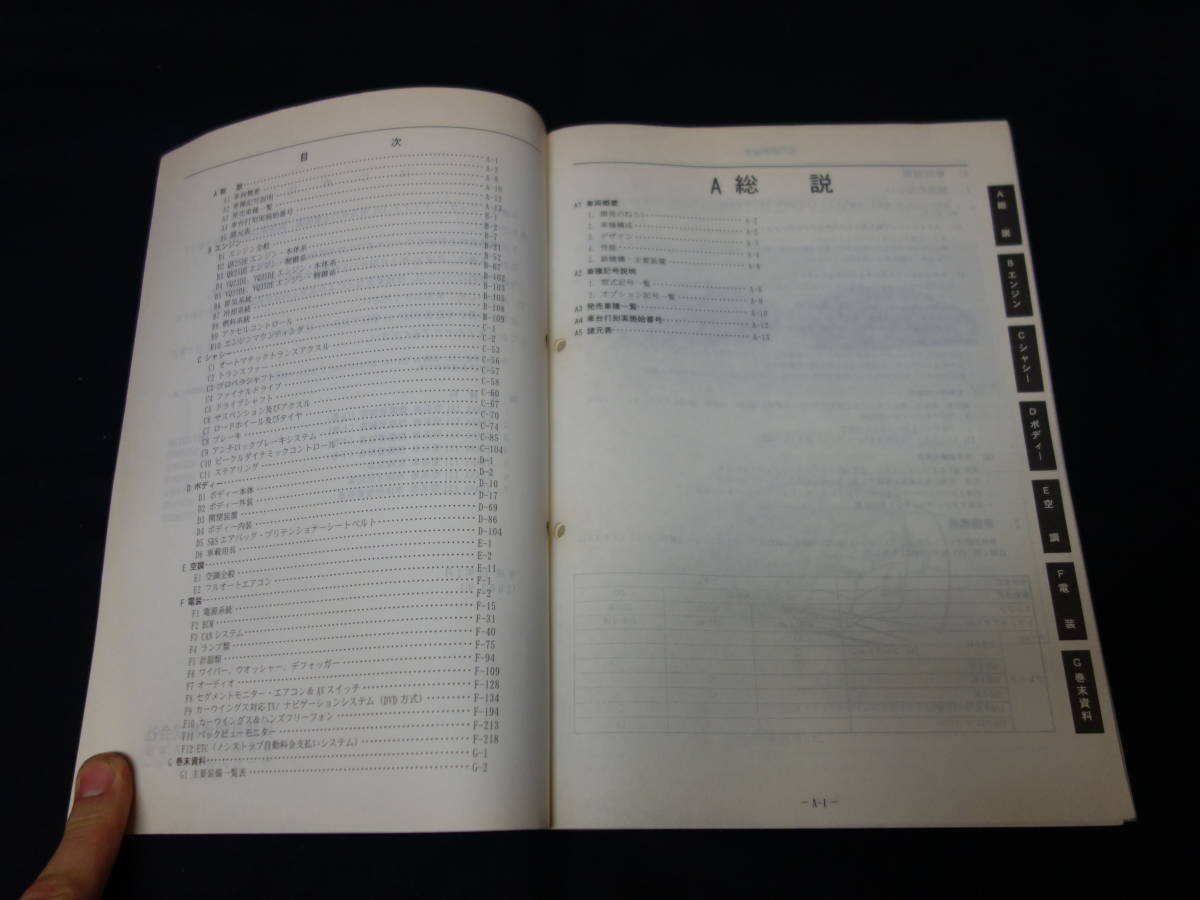 目 次
A 総 説 A-1
A1 車両概要 A-2
A2 車種記号説明 A-8
A3 発売車種一覧 A-10
A4 車台打刻実施始番号 A-12
A5 諸元表 A-13
B エンジン B-1
B1 エンジン全般 B-2
B2 QR25DE エンジン・本体系 B-7
B3 QR25DE エンジン・制御系
B4 VQ23DE、VQ35DE エンジン・本体系
B5 VQ23DE、VQ35DE エンジン・制御系
B6 排気系統
B7 冷却系統
B8 燃料系統
B9 アクセルコントロール
B10 エンジンマウンティング B-109
C シャシー C-1
C1 オートマチックトランスアクスル C-2
C2 トランスファー C-53
C3 プロペラシャフト C-56
C4 ファイナルドライブ C-57
C5 ドライブシャフト C-58
C6 サスペンション及びアクスル C-60
C7 ロードホイール及びタイヤ C-67
C8 ブレーキ C-70
C9 アンチロックブレーキシステム C-74
C10 ビークルダイナミックコントロール C-85
C11 ステアリング C-104
D ボディー D-1
D1 ボディー本体 D-2
D2 ボディー外装 D-10
D3 開閉装置 D-17
D4 ボディー内装 D-69
D5 SRSエアバッグ・プリテンショナーシートベルト D-86
D6 車載用具 D-104
E 空調 E-1
E1 空調全般 E-2
E2 フルオートエアコン E-11
F 電装 F-1
F1 電源系統 F-2
F2 BCM F-15
F3 CANシステム F-31
F4 ランプ類 F-40
F5 計器類 F-75
F6 ワイパー、ウオッシャー、デフォッガー F-94
F7 オーディオ F-109
F8 セグメントモニター・エアコン＆AVスイッチ F-128
F9 カーウイングス対応TV/ナビゲーションシステム（DVD方式） F-134
F10 カーウイングス＆ハンズフリーフォン F-194
F11 バックビューモニター F-213
F12 ETC（ノンストップ自動料金支払いシステム） F-218
G 巻末資料 G-1
G1 主要装備一覧表 G-2
A 総 説
A1 車両概要
1. 開発のねらい A-2
2. 車種構成 A-2
3. デザイン A-3
4. 性能 A-4
5. 新機構・主要装備 A-6
A2 車種記号説明
1. 型式記号一覧 A-8
2. オプション記号一覧 A-9
A3 発売車種一覧 A-10
A4 車台打刻実施始番号 A-12
A5 諸元表 A-13
A 総 説
B エンジン
C シャシー
D ボディー
E 空 調
F 電 装
G 巻末資料
－ A-1 －